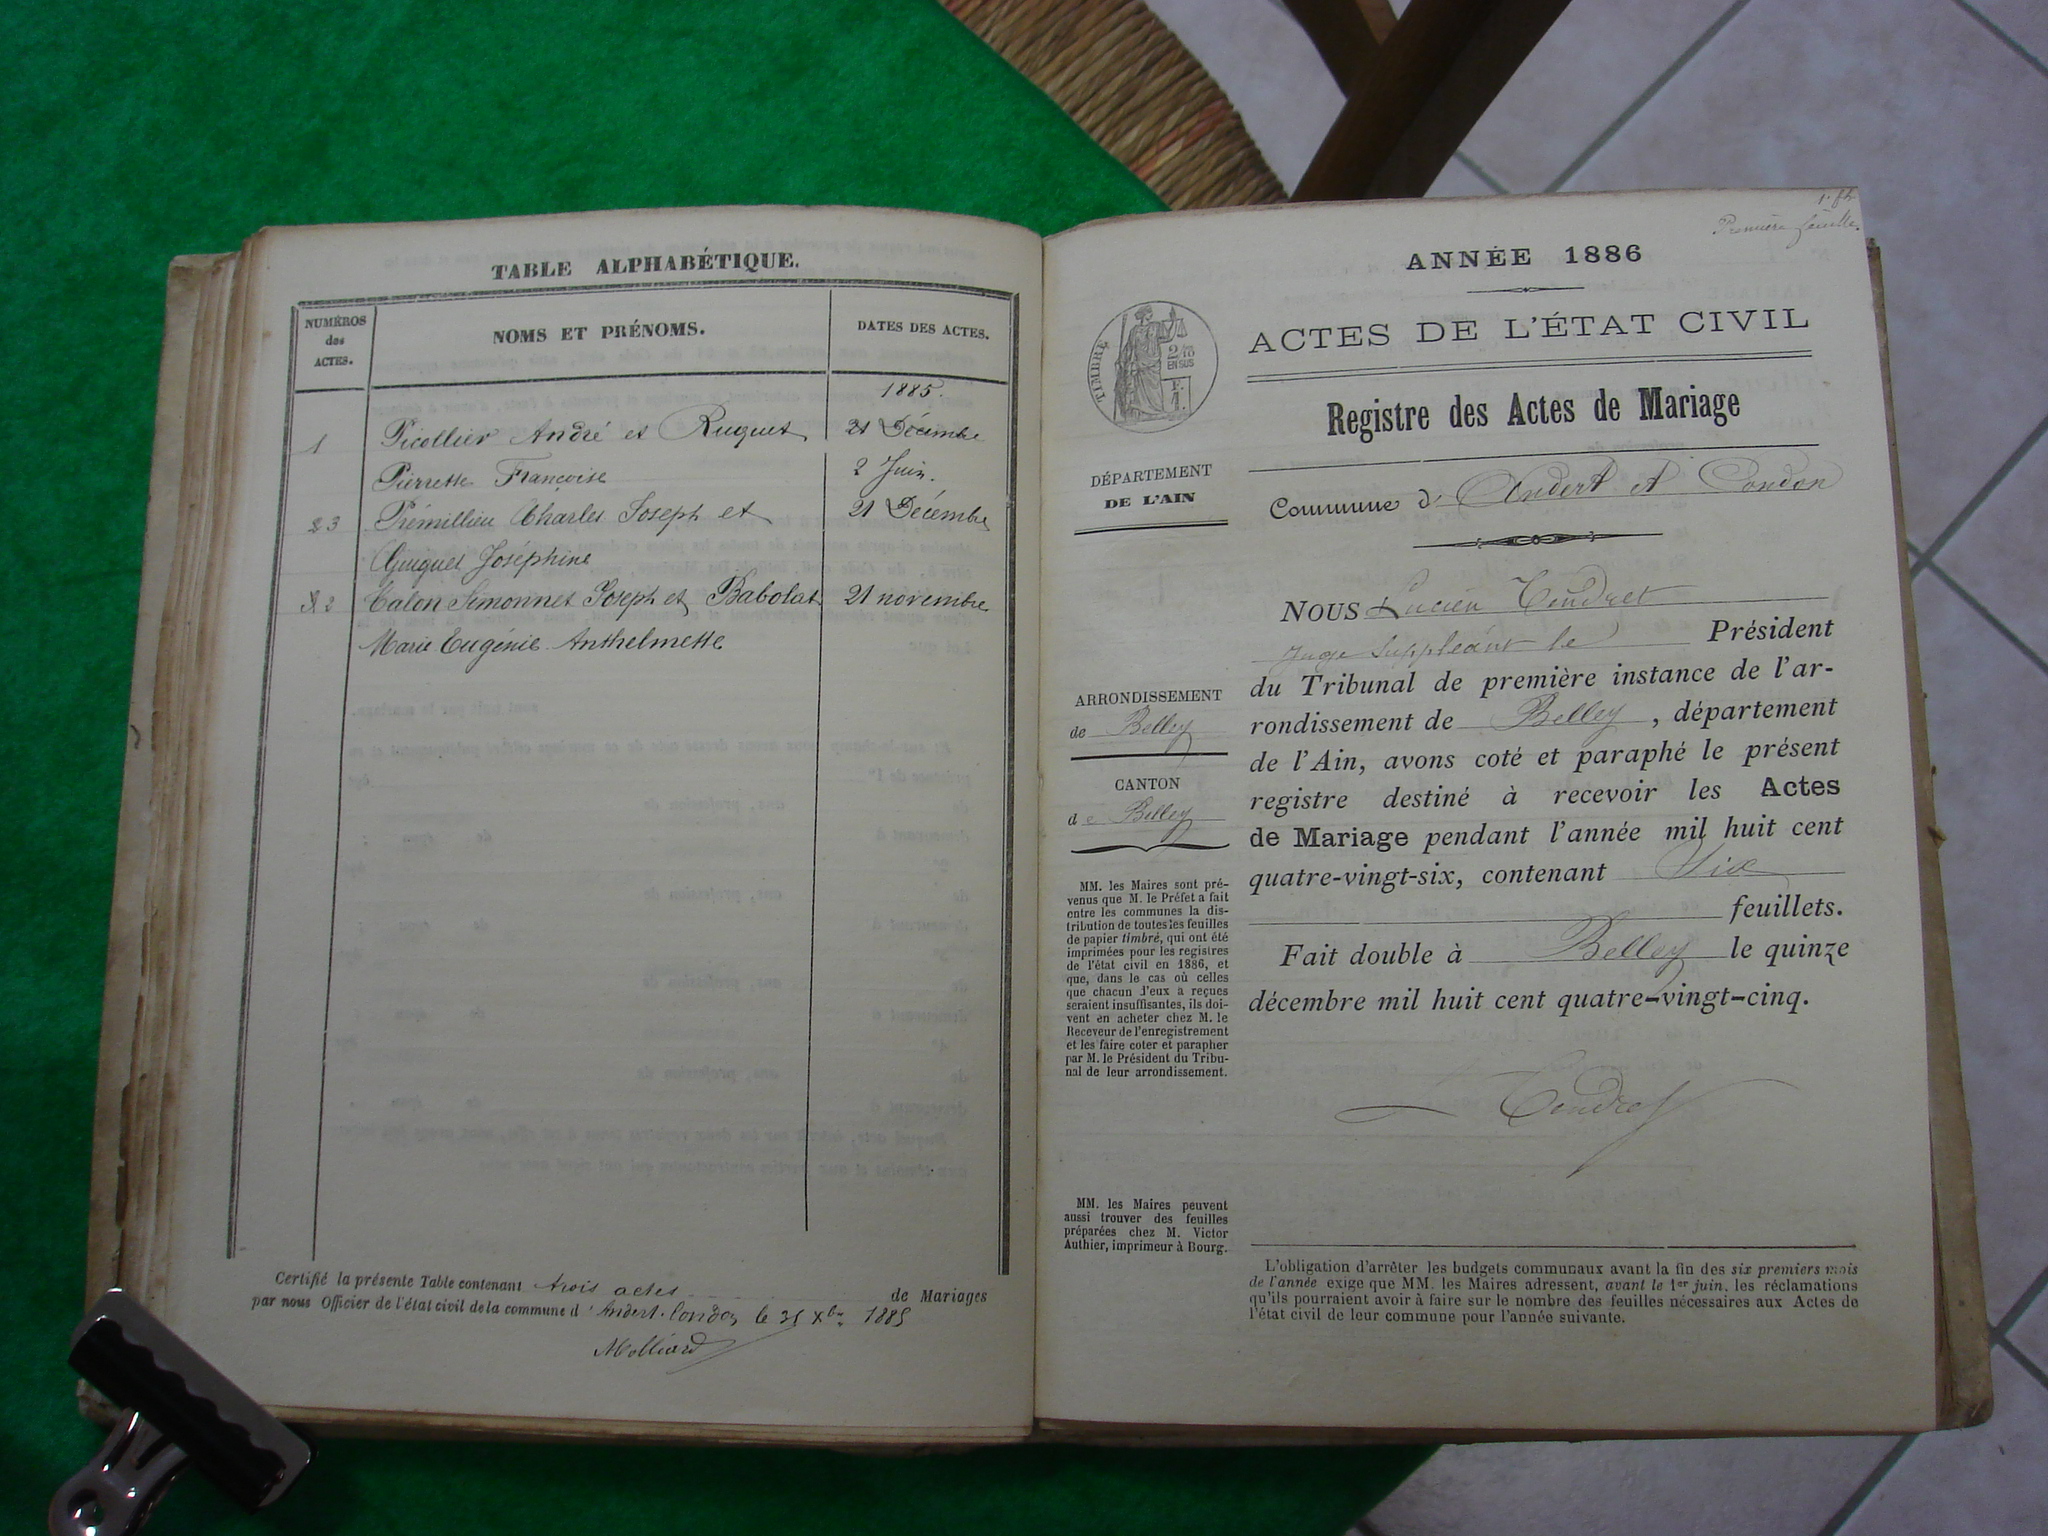 TABLE ALPHABÉTIQUE.
NUMÉROS des ACTES.
NOMS ET PRÉNOMS.
DATES DES ACTES.
1885.
1 Picollier André et Ruguet 21 Décembre
Pierrette Françoise 2 Juin.
3 Prémillieu Charles Joseph et 21 Décembre
Guiguet Joséphine
2 Calon Simonnet Joseph et Babolat 21 novembre
Marie Eugénie Anthelmette
Certifié la présente Table contenant trois actes de Mariages
par nous Officier de l'état civil de la commune d'Andert-Condon le 31 Xbre 1885
Molliard
Première feuille.
ANNÉE 1886
TIMBRE
2/10 EN SUS
ACTES DE L'ÉTAT CIVIL
Registre des Actes de Mariage
DÉPARTEMENT
DE L'AIN
Commune d'Andert et Condon
ARRONDISSEMENT
de Belley
CANTON
de Belley
MM. les Maires sont pré-
venus que M. le Préfet a fait
entre les communes la dis-
tribution de toutes les feuilles
de papier timbré, qui ont été
imprimées pour les registres
de l'état civil en 1886, et
que, dans le cas où celles
que chacun d'eux a reçues
seraient insuffisantes, ils doi-
vent en acheter chez M. le
Receveur de l'enregistrement
et les faire coter et parapher
par M. le Président du Tribu-
nal de leur arrondissement.
MM. les Maires peuvent
aussi trouver des feuilles
préparées chez M. Victor
Authier, imprimeur à Bourg.
NOUS Lucien Tendret
Juge suppléant le Président
du Tribunal de première instance de l'ar-
rondissement de Belley, département
de l'Ain, avons coté et paraphé le présent
registre destiné à recevoir les Actes
de Mariage pendant l'année mil huit cent
quatre-vingt-six, contenant Six
feuillets.
Fait double à Belley le quinze
décembre mil huit cent quatre-vingt-cinq.
Tendret
L'obligation d'arrêter les budgets communaux avant la fin des six premiers mois
de l'année exige que MM. les Maires adressent, avant le 1er juin, les réclamations
qu'ils pourraient avoir à faire sur le nombre des feuilles nécessaires aux Actes de
l'état civil de leur commune pour l'année suivante.